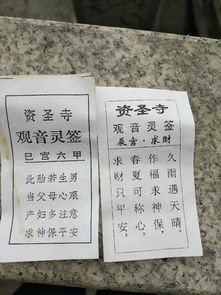 资圣寺
观音灵签
巳宫六甲
此胎若生男
当父母心艰
产妇多注意
求神保平安
资圣寺
观音灵签
辰宫·求财
求财只平安，
春夏可称心。
作福求神保，
久雨遇天晴。